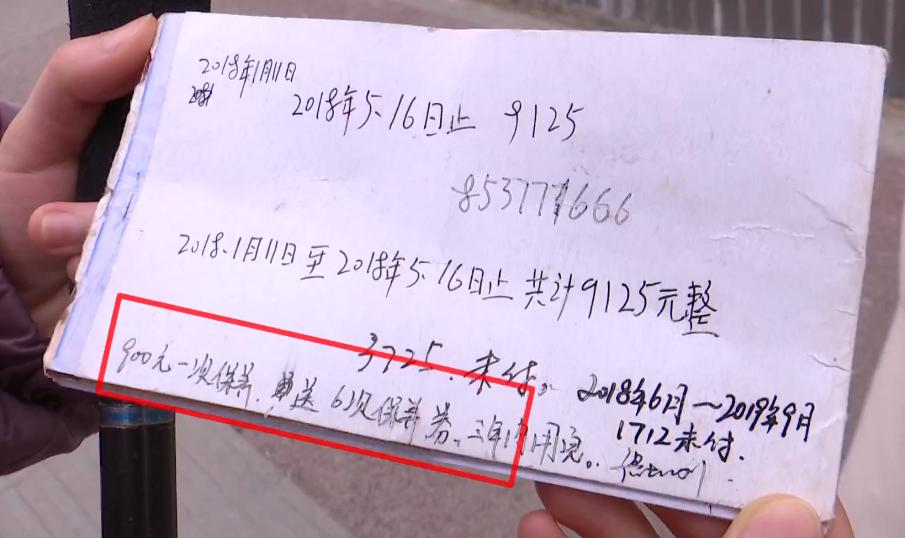 2018年1月11日
2018年5.16日止 9125
853777666
2018.1月11日至2018年5.16日止共计9125元整
3725.未付。
2018年6月～2019年9月
1712未付.
900元一次保养.送6次保养券。三年内用完。